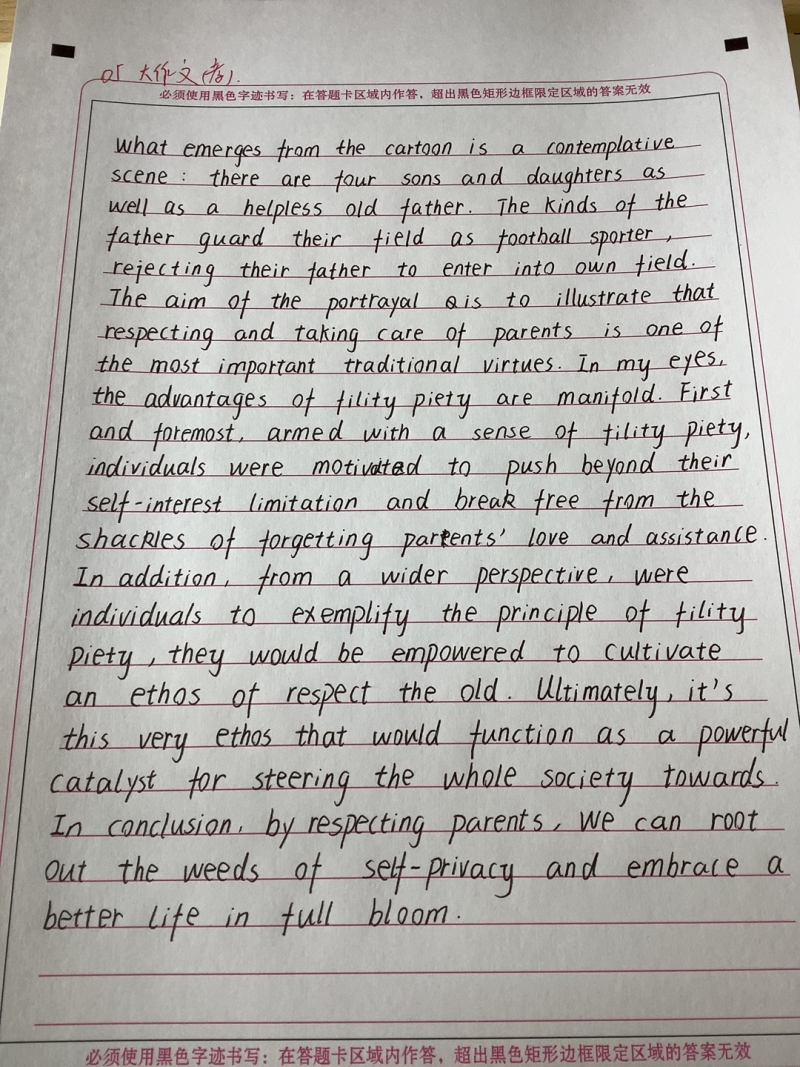 05 大作文(考).
必须使用黑色字迹书写：在答题卡区域内作答，超出黑色矩形边框限定区域的答案无效
What emerges from the cartoon is a contemplative
scene : there are four sons and daughters as
well as a helpless old father. The kinds of the
father guard their field as football sporter,
rejecting their father to enter into own field.
The aim of the portrayal is to illustrate that
respecting and taking care of parents is one of
the most important traditional virtues. In my eyes,
the advantages of fility piety are manifold. First
and foremost, armed with a sense of fility piety,
individuals were motivated to push beyond their
self-interest limitation and break free from the
shackles of forgetting parents' love and assistance.
In addition, from a wider perspective, were
individuals to exemplify the principle of fility
piety, they would be empowered to cultivate
an ethos of respect the old. Ultimately, it's
this very ethos that would function as a powerful
catalyst for steering the whole society towards.
In conclusion, by respecting parents, we can root
out the weeds of self-privacy and embrace a
better life in full bloom.
必须使用黑色字迹书写：在答题卡区域内作答，超出黑色矩形边框限定区域的答案无效